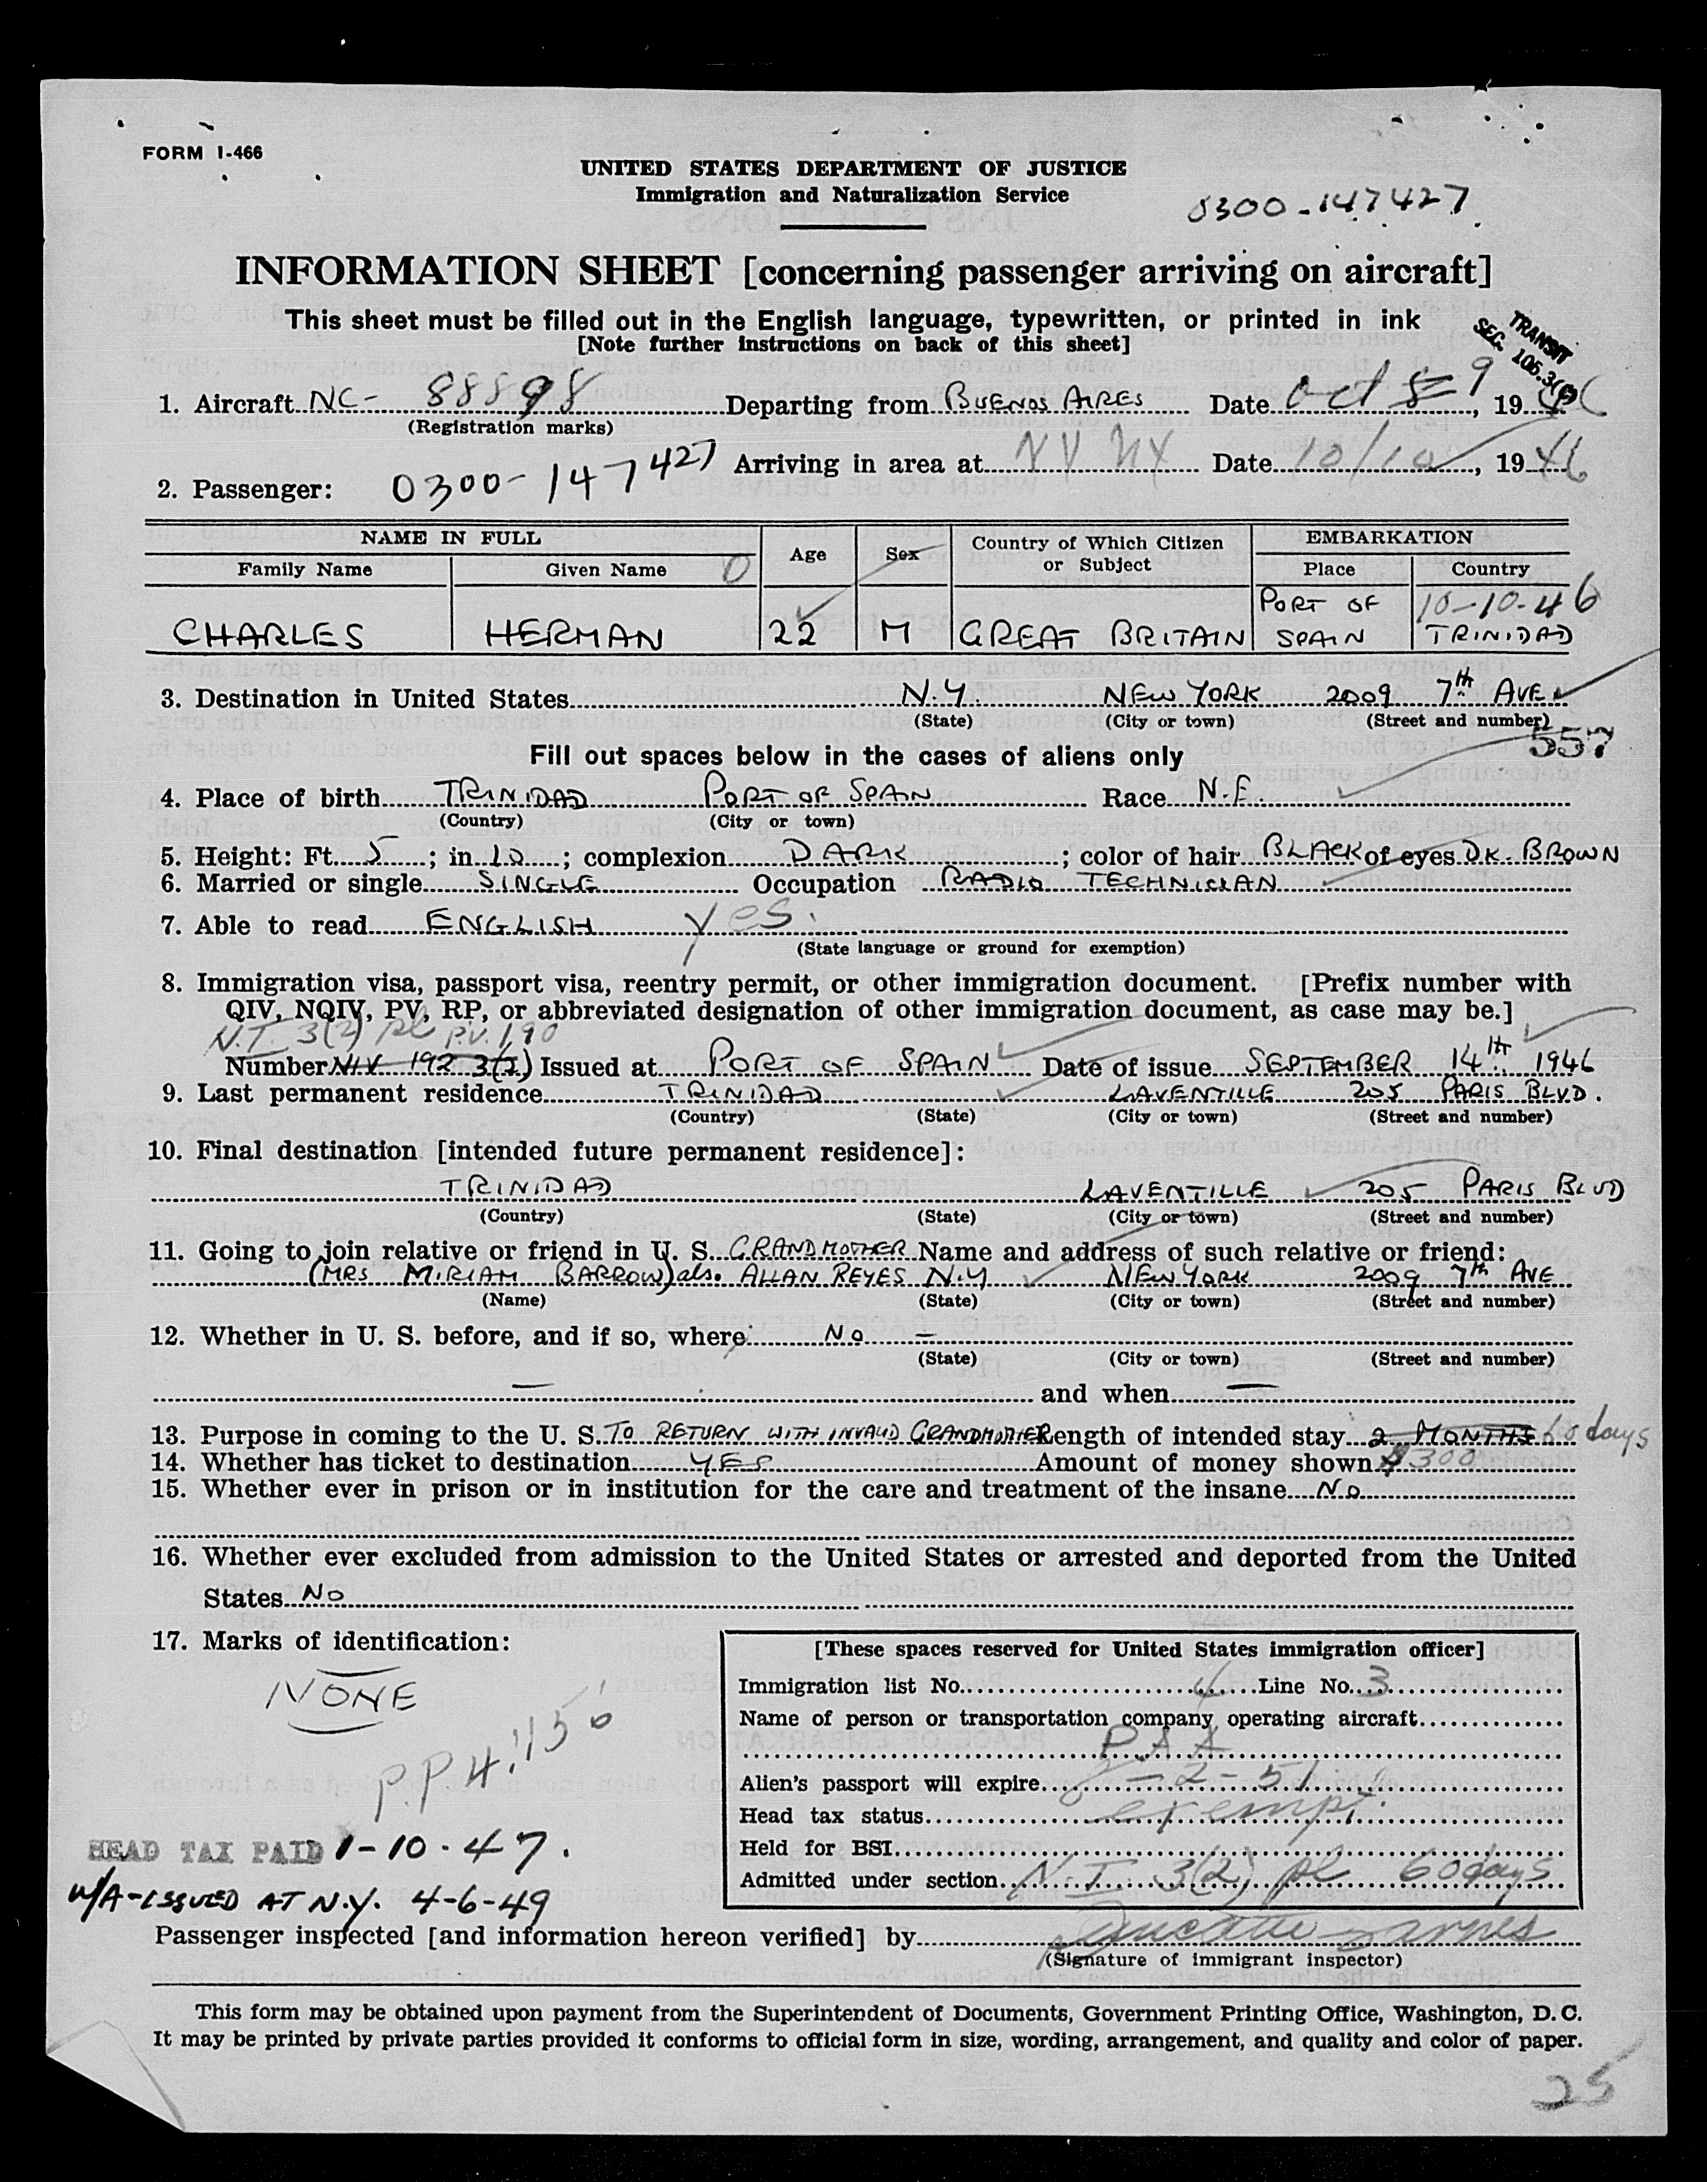 FORM I-466
UNITED STATES DEPARTMENT OF JUSTICE
Immigration and Naturalization Service
0300-147427
INFORMATION SHEET [concerning passenger arriving on aircraft]
This sheet must be filled out in the English language, typewritten, or printed in ink
[Note further instructions on back of this sheet]
TRANSIT
SEC. 106.3
1. Aircraft NC- 88898 Departing from BUENOS AIRES Date Oct 9, 1946
(Registration marks)
Arriving in area at NY NY Date 10/10, 1946
2. Passenger: 0300-147427
NAME IN FULL Age Sex Country of Which Citizen or Subject EMBARKATION
Family Name Given Name Place Country
10-10-46
CHARLES HERMAN 22 M GREAT BRITAIN PORT OF SPAIN TRINIDAD
3. Destination in United States N.Y. NEW YORK 2009 7th AVE
(State) (City or town) (Street and number)
557
Fill out spaces below in the cases of aliens only
4. Place of birth TRINIDAD PORT OF SPAIN Race N.E.
(Country) (City or town)
5. Height: Ft. 5; in. 10; complexion DARK; color of hair BLACK of eyes DK. BROWN
6. Married or single SINGLE Occupation RADIO TECHNICIAN
7. Able to read ENGLISH yes.
(State language or ground for exemption)
8. Immigration visa, passport visa, reentry permit, or other immigration document. [Prefix number with
QIV, NQIV, PV, RP, or abbreviated designation of other immigration document, as case may be.]
N.T. 3(2) pl P.V. 190
Number NIV 192 3(2) Issued at PORT OF SPAIN Date of issue SEPTEMBER 14th 1946
9. Last permanent residence TRINIDAD LAVENTILLE 205 PARIS BLVD.
(Country) (State) (City or town) (Street and number)
10. Final destination [intended future permanent residence]:
TRINIDAD LAVENTILLE 205 PARIS BLVD
(Country) (State) (City or town) (Street and number)
11. Going to join relative or friend in U. S. GRANDMOTHER Name and address of such relative or friend:
(MRS MIRIAM BARROW) als. ALLAN REYES N.Y NEW YORK 2009 7th AVE
(Name) (State) (City or town) (Street and number)
12. Whether in U. S. before, and if so, where No —
(State) (City or town) (Street and number)
— and when —
13. Purpose in coming to the U. S. TO RETURN WITH INVALID GRANDMOTHER Length of intended stay 2 MONTHS 60 days
14. Whether has ticket to destination YES Amount of money shown $300
15. Whether ever in prison or in institution for the care and treatment of the insane No
16. Whether ever excluded from admission to the United States or arrested and deported from the United
States No
17. Marks of identification:
NONE
P.P 4.
HEAD TAX PAID 1-10-47.
W/A-ISSUED AT N.Y. 4-6-49
[These spaces reserved for United States immigration officer]
Immigration list No. 4 Line No. 3
Name of person or transportation company operating aircraft
PAA
Alien's passport will expire 8-2-51
Head tax status exempt
Held for BSI
Admitted under section N.T. 3(2) pl 60 days
Passenger inspected [and information hereon verified] by
(Signature of immigrant inspector)
This form may be obtained upon payment from the Superintendent of Documents, Government Printing Office, Washington, D. C.
It may be printed by private parties provided it conforms to official form in size, wording, arrangement, and quality and color of paper.
25